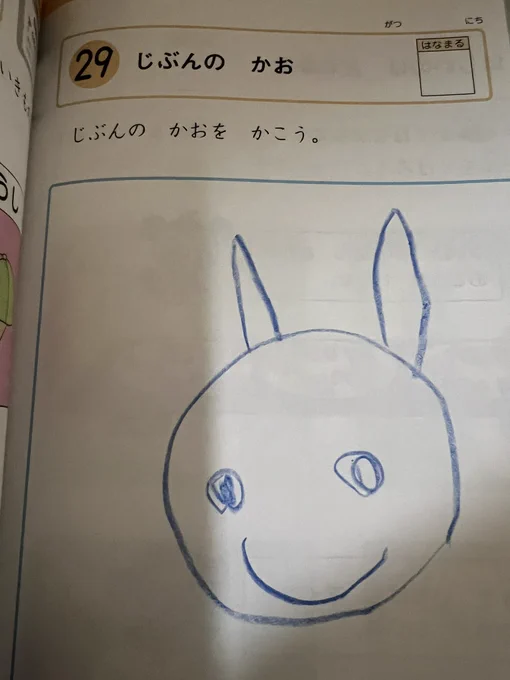 がつ にち
29 じぶんの かお
はなまる
じぶんの かおを かこう。